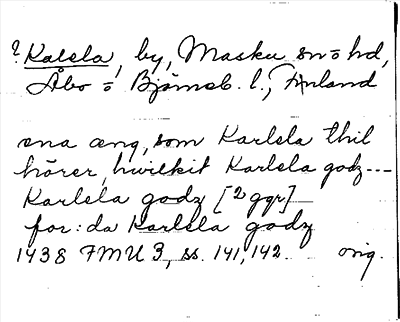 ? Kalela, by, Masku sn o hd,
Åbo o Björneb. l., Finland
ena æng, som Karlela thil
hörer, hwilkit Karlela godz ---
Karlela godz [2 ggr]
for: da Karlela godz
1438 FMU 3, ss. 141, 142 orig.